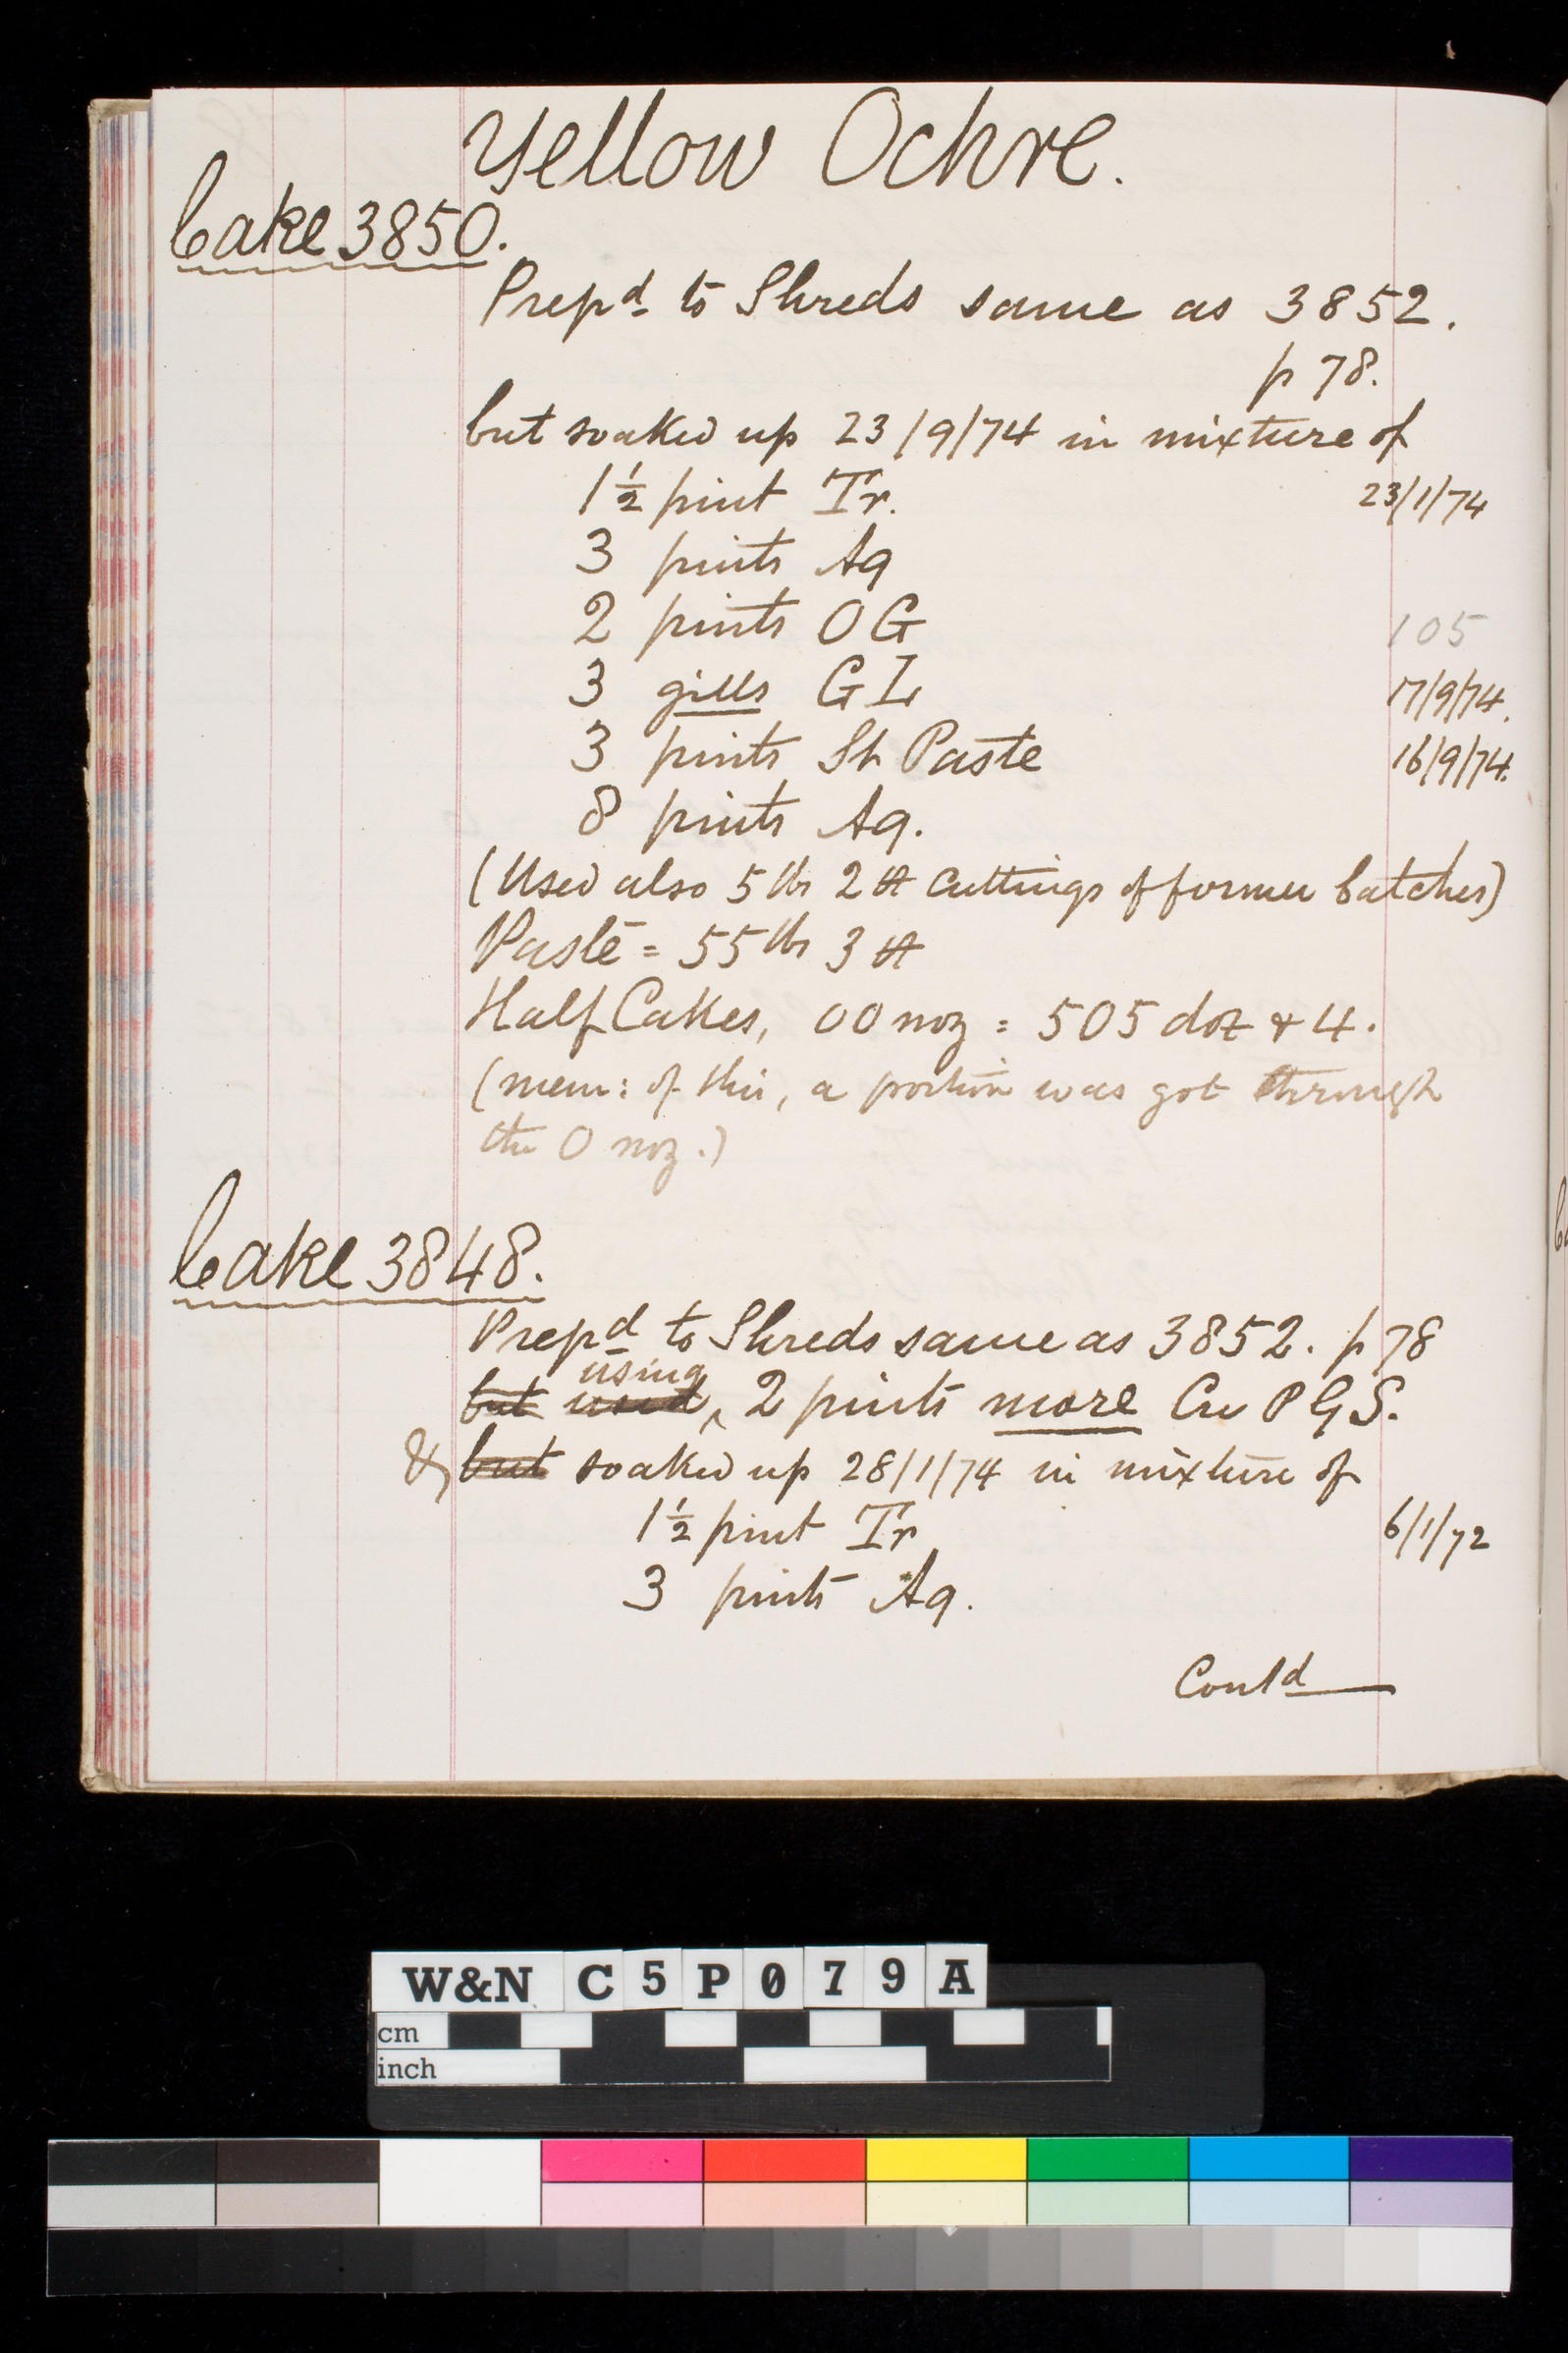 Yellow Ochre.
Cake 3850.
Prepd to Shreds same as 3852.
p 78.
but soaked up 23/9/74 in mixture of
1½ pint Tr. 23/1/74
3 pints Aq
2 pints OG 105
3 gills GL 17/9/74.
3 pints St Paste 16/9/74.
8 pints Aq.
(Used also 5 lbs 2 cuttings of former batches)
Paste = 55 lbs 3
Half Cakes, 00 noz = 505 doz & 4.
(mem: of this, a portion was got through
the 0 noz.)
Cake 3848.
Prepd to Shreds same as 3852. p 78
using
but used, 2 pints more Cw PGS.
& but soaked up 28/1/74 in mixture of
1½ pint Tr 6/1/72
3 pints Aq.
Contd
W&N C5P079A
cm
inch